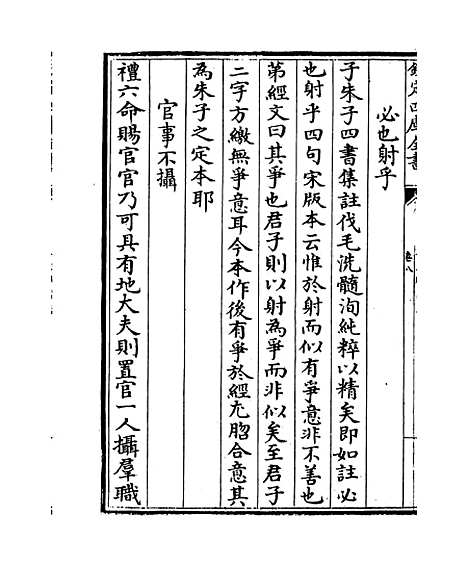 欽定四庫全書
卷八
必也射乎
子朱子四書集註伐毛洗髓洵純粹以精矣即如註必
也射乎四句宋版本云惟於射而似有爭意非不善也
第經文曰其爭也君子則以射為爭而非似矣至君子
二字方繳無爭意耳今本作後有爭於經尤脗合意其
為朱子之定本耶
官事不攝
禮六命賜官官乃可具有地大夫則置官一人攝羣職